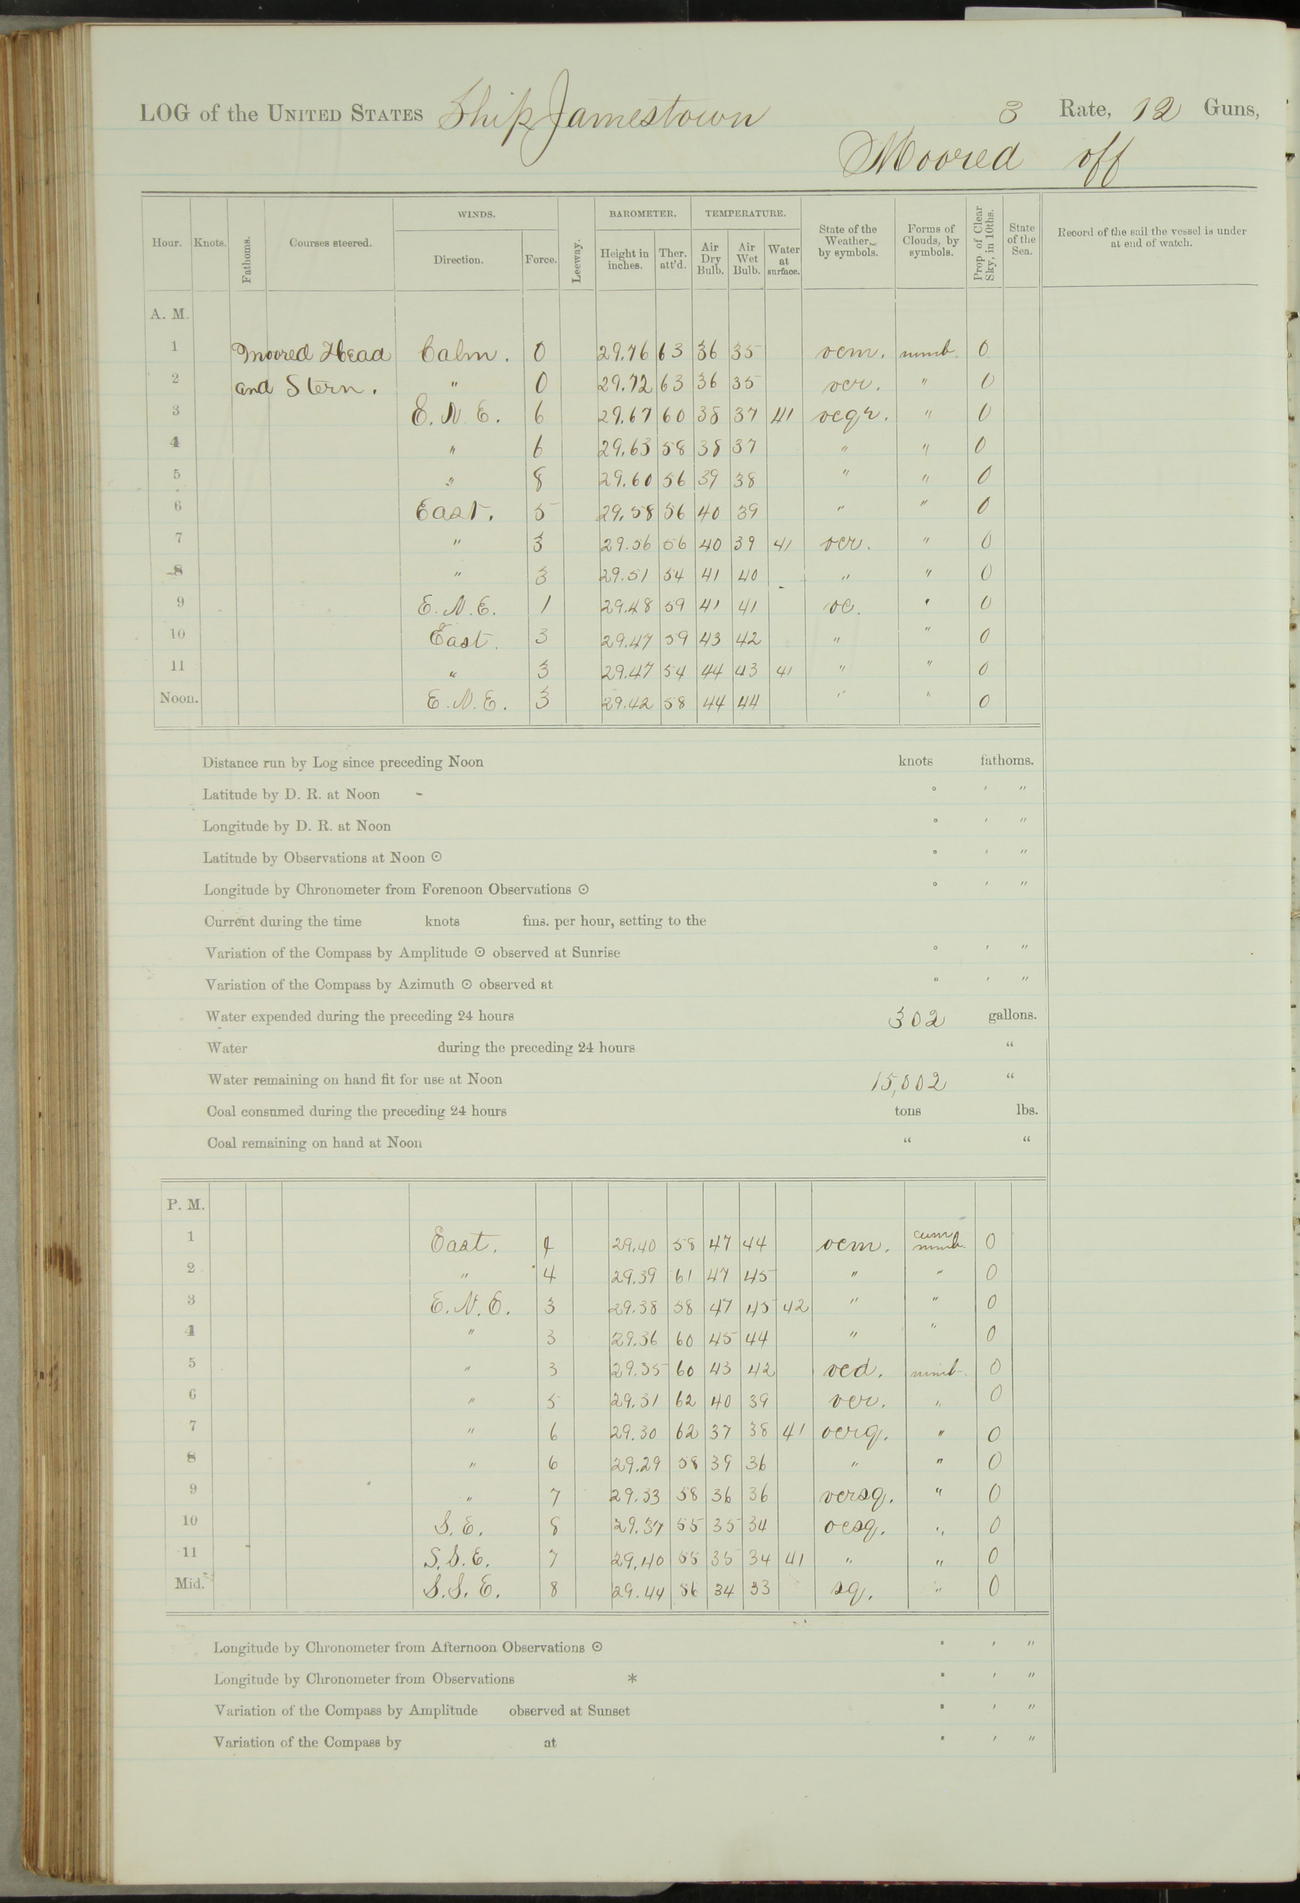 LOG of the UNITED STATES Ship Jamestown 3 Rate, 12 Guns,
Moored off
Hour. Knots. Fathoms. Courses steered. WINDS. Direction. Force. Leeway. BAROMETER. Height in inches. Ther. att'd. TEMPERATURE. Air Dry Bulb. Air Wet Bulb. Water at surface. State of the Weather by symbols. Forms of Clouds, by symbols. Prop. of Clear Sky, in 10ths. State of the Sea. Record of the sail the vessel is under at end of watch.
A. M.
1 Moored Head Calm. 0 29.76 63 36 35 ocm. nimb. 0
2 and Stern. " 0 29.72 63 36 35 ocr. " 0
3 E. N. E. 6 29.67 60 38 37 41 ocqr. " 0
4 " 6 29.63 58 38 37 " " 0
5 " 8 29.60 56 39 38 " " 0
6 East. 5 29.58 56 40 39 " " 0
7 " 3 29.56 56 40 39 41 ocr. " 0
8 " 3 29.51 54 41 40 " " 0
9 E. N. E. 1 29.48 59 41 41 oc. " 0
10 East. 3 29.47 59 43 42 " " 0
11 " 3 29.47 54 44 43 41 " " 0
Noon. E. N. E. 3 29.42 58 44 44 " " 0
Distance run by Log since preceding Noon knots fathoms.
Latitude by D. R. at Noon ° ′ ″
Longitude by D. R. at Noon ° ′ ″
Latitude by Observations at Noon ⊙ ° ′ ″
Longitude by Chronometer from Forenoon Observations ⊙ ° ′ ″
Current during the time knots fms. per hour, setting to the
Variation of the Compass by Amplitude ⊙ observed at Sunrise ° ′ ″
Variation of the Compass by Azimuth ⊙ observed at ° ′ ″
Water expended during the preceding 24 hours 302 gallons.
Water during the preceding 24 hours "
Water remaining on hand fit for use at Noon 15,002 "
Coal consumed during the preceding 24 hours tons lbs.
Coal remaining on hand at Noon " "
P. M.
1 East. 4 29.40 58 47 44 ocm. cum nimb. 0
2 " 4 29.39 61 47 45 " " 0
3 E. N. E. 3 29.38 58 47 45 42 " " 0
4 " 3 29.36 60 45 44 " " 0
5 " 3 29.35 60 43 42 ocd. nimb. 0
6 " 5 29.31 62 40 39 ocr. " 0
7 " 6 29.30 62 37 38 41 ocrq. " 0
8 " 6 29.29 58 39 36 " " 0
9 " 7 29.33 58 36 36 ocrsq. " 0
10 S. E. 8 29.37 55 35 34 ocsq. " 0
11 S. S. E. 7 29.40 55 35 34 41 " " 0
Mid. S. S. E. 8 29.44 56 34 33 sq. " 0
Longitude by Chronometer from Afternoon Observations ⊙ ° ′ ″
Longitude by Chronometer from Observations * ° ′ ″
Variation of the Compass by Amplitude observed at Sunset ° ′ ″
Variation of the Compass by at ° ′ ″